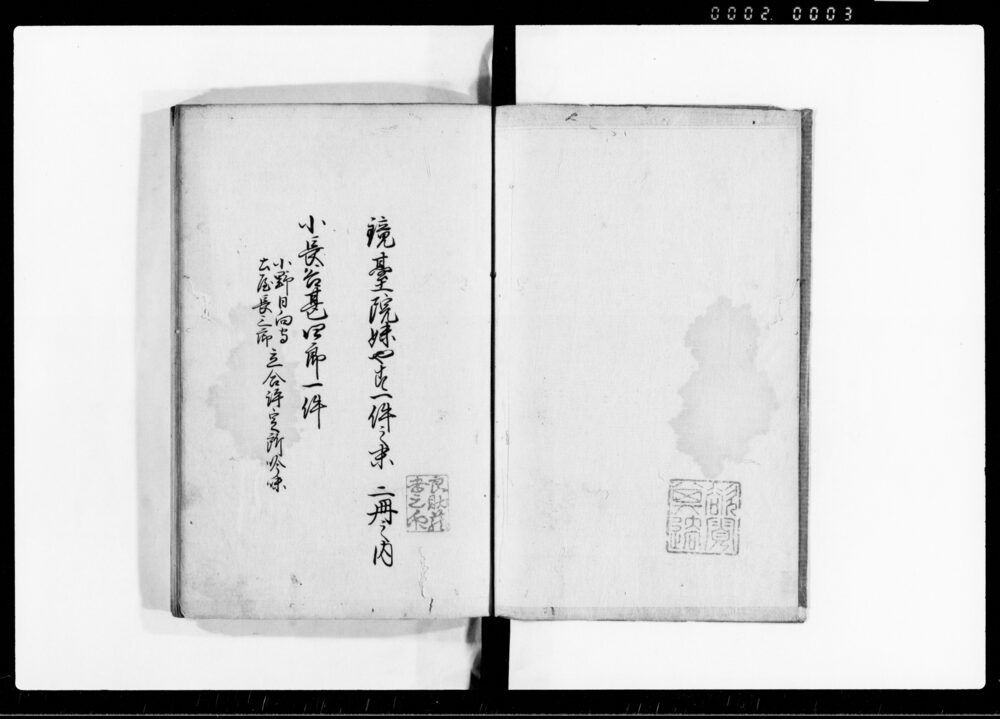 0002 0003
鏡臺院妹やす一件之末 二冊之内
小長谷甚四郎一件
小野日向守
土屋長三郎
立合評定所吟味